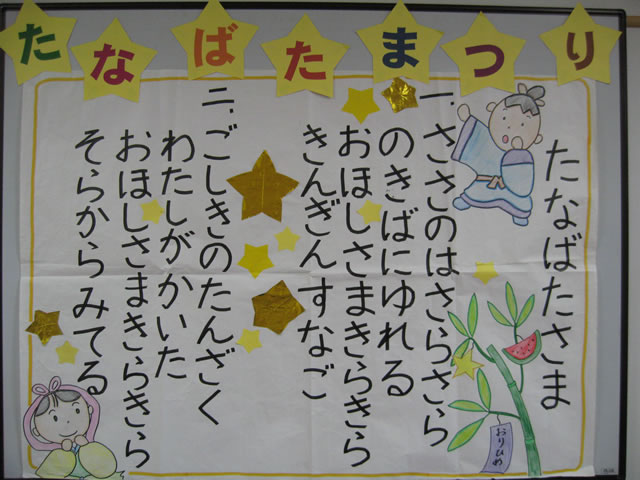 たなばたまつり
たなばたさま
一.ささのはさらさら
のきばにゆれる
おほしさまきらきら
きんぎんすなご
二.ごしきのたんざく
わたしがかいた
おほしさまきらきら
そらからみてる
おりひめ